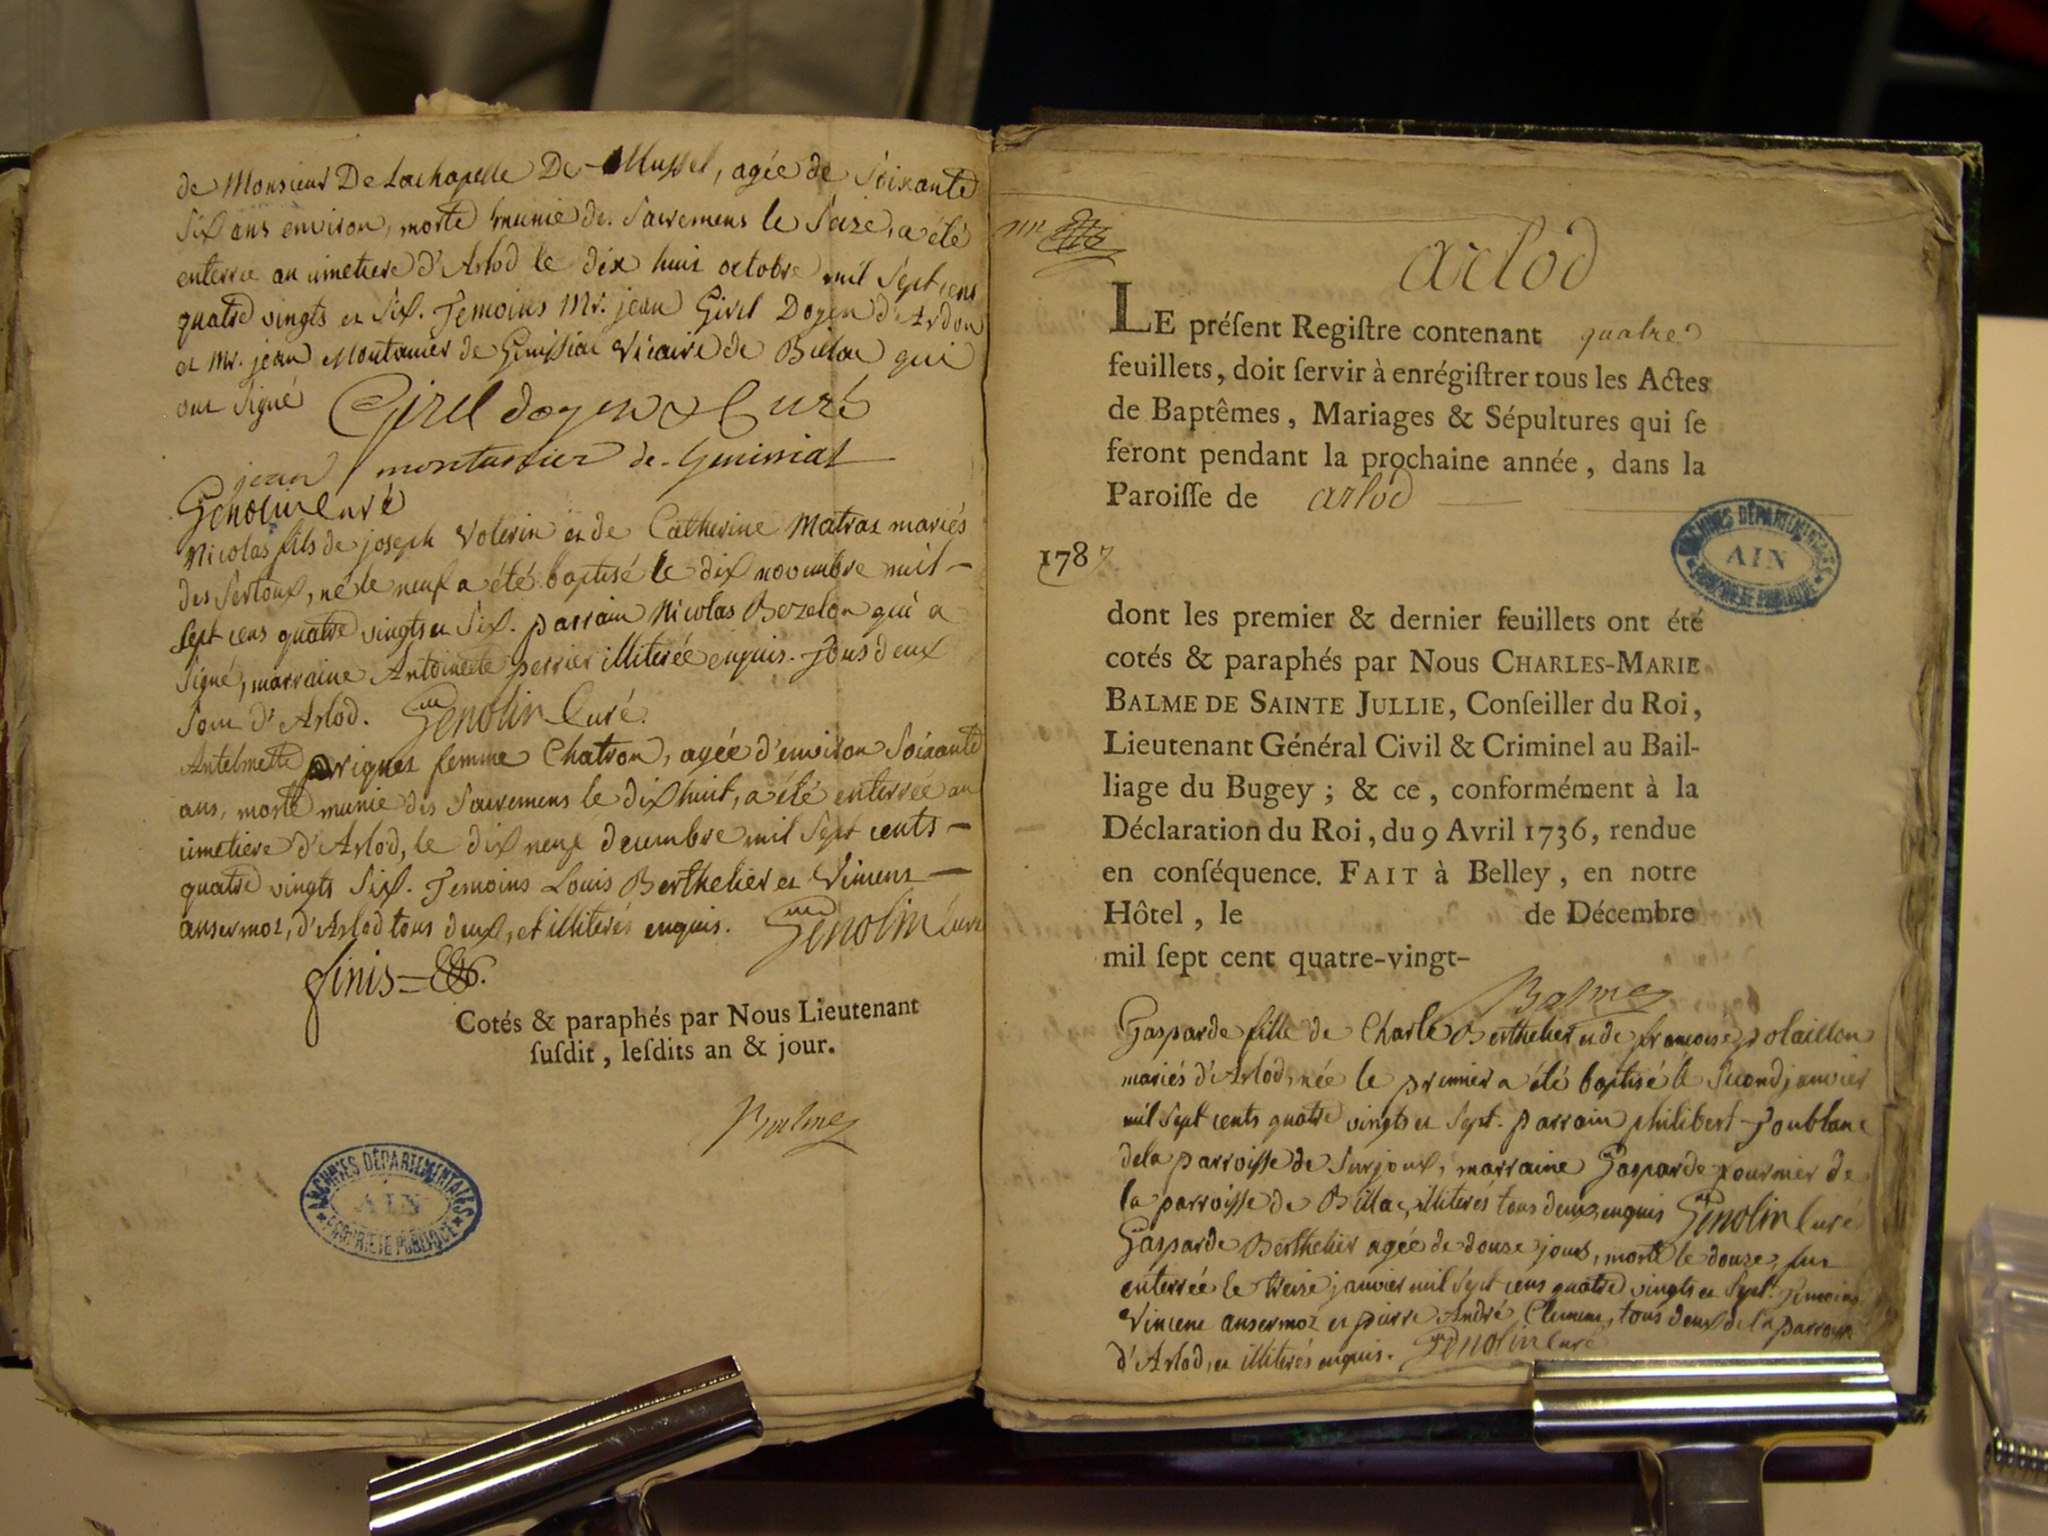 de Monsieur De Lachapelle De Mussel, agée de Soixante
Six ans environ, morte munie des Sacremens le Seize, a été
enterrée au cimetiere d'Arlod le dix huit octobre mil Sept cens
quatre vingts et Six. Temoins Mr. jean Girel Doyen d'Ardon
et Mr. jean Montanier de Genissiat Vicaire de Billiat qui
ont Signé Girel doyen & Curé
jean montanier de Genissiat
Genolin Curé
Nicolas fils de joseph Volerin et de Catherine Matraz mariés
des Sertoux, né le neuf a été baptisé le dix novembre mil-
Sept cens quatre vingts et Six. parrain Nicolas Bozelon qui a
Signé, marraine Antoinette perrier illiterée enquis. Tous deux
Sont d'Arlod. Genolin Curé.
Antelmette femme Chatron, agée d'environ Soixante
ans, morte munie des Sacremens le dix huit, a été enterrée au
cimetiere d'Arlod, le dix neuf decembre mil Sept cents-
quatre vingts Six. Temoins Louis Berthelier et Vincent-
ansermoz, d'Arlod tous deux, et illiterés enquis. Genolin Curé
finis
Cotés & paraphés par Nous Lieutenant
ſuſdit, leſdits an & jour.
Balme
ARCHIVES DÉPARTEMENTALES
AIN
PROPRIÉTÉ PUBLIQUE
arlod
LE préſent Regiſtre contenant quatre
feuillets, doit ſervir à enrégiſtrer tous les Actes
de Baptêmes, Mariages & Sépultures qui ſe
feront pendant la prochaine année, dans la
Paroiſſe de arlod
ARCHIVES DÉPARTEMENTALES
AIN
PROPRIÉTÉ PUBLIQUE
1787
dont les premier & dernier feuillets ont été
cotés & paraphés par Nous CHARLES-MARIE
BALME DE SAINTE JULLIE, Conſeiller du Roi,
Lieutenant Général Civil & Criminel au Bail-
liage du Bugey; & ce, conformément à la
Déclaration du Roi, du 9 Avril 1736, rendue
en conſéquence. FAIT à Belley, en notre
Hôtel, le de Décembre
mil ſept cent quatre-vingt-
Balme
Gasparde fille de Charle Berthelier et de françoise polaillon
mariés d'Arlod, née le premier a été baptisé le Second janvier
mil Sept cents quatre vingts et Sept. parrain philibert Joublanc
dela parroisse de Surjoux, marraine Gasparde fournier de
la parroisse de Billiat, illiterés tous deux enquis Genolin Curé
Gasparde Berthelier agée de douze jours, morte le douze, fut
enterrée le treize janvier mil Sept cens quatre vingts et Sept. Temoins
Vincent ansermoz et pierre André Clement, tous deux de la parroisse
d'Arlod, et illiterés enquis. Genolin Curé